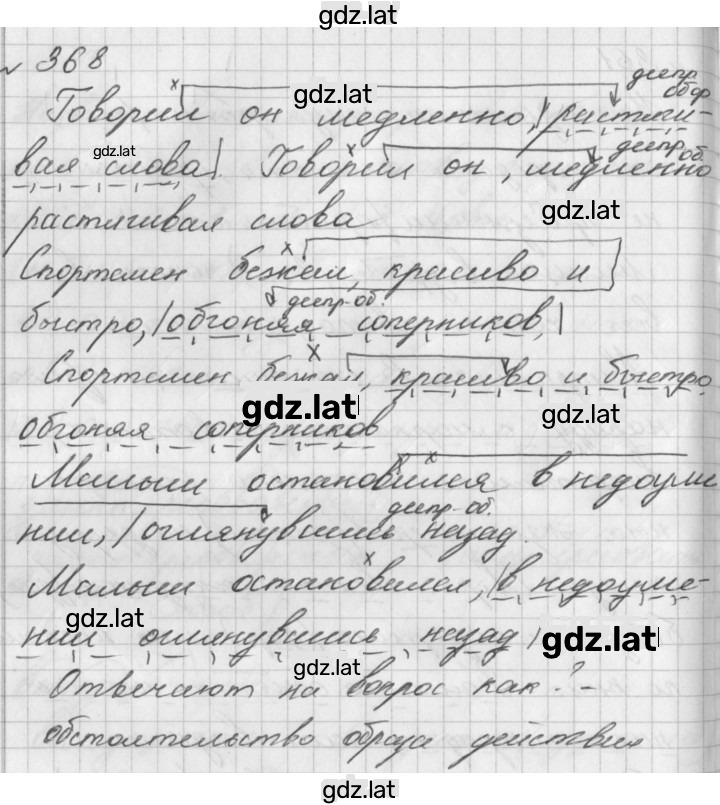 gdz.lat
№ 368
деепр. об.
Говорил он медленно, растяги-
вая слова. Говорил он, медленно
деепр. об.
растягивая слова
Спортсмен бежал, красиво и
деепр. об.
быстро, обгоняя соперников,
Спортсмен бежал, красиво и быстро
обгоняя соперников
Малыш остановился в недоуме
деепр. об.
нии, оглянувшись назад.
Малыш остановился, в недоуме-
нии оглянувшись назад
Отвечают на вопрос как? -
обстоятельство образа действия
gdz.lat
gdz.lat
gdz.lat
gdz.lat
gdz.lat
gdz.lat
gdz.lat
gdz.lat
gdz.lat